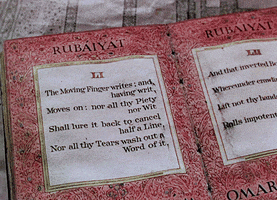 RUBAIYAT
LI
The Moving Finger writes; and,
having writ,
Moves on: nor all thy Piety
nor Wit
Shall lure it back to cancel
half a Line,
Nor all thy Tears wash out a
Word of it.
RUBAIYAT
LII
And that inverted Bo
Whereunder
Lift not thy hands
Rolls impotent
OMAR